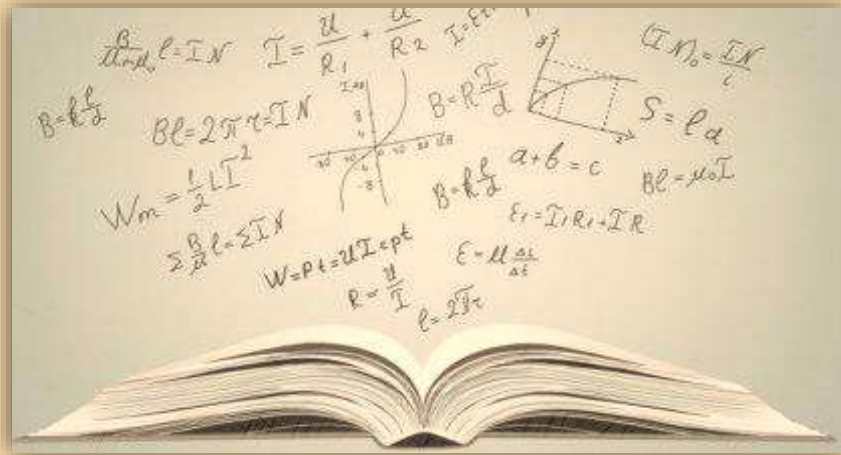 B/μ₀ l = IN
I = U/R₁ + U/R₂
(IN)₀ = IN/l
B = R l/d
Bl = 2πr = IN
B = R I/d
S = ld
Wm = 1/2 LI²
B = R l/d
a + b = c
Bl = μ₀I
Σ B/μ l = ΣIN
ε₁ = I₁R₁ + IR
W = Pt = UI = pt
ε = M Δi/Δt
R = U/I
l = 2πr